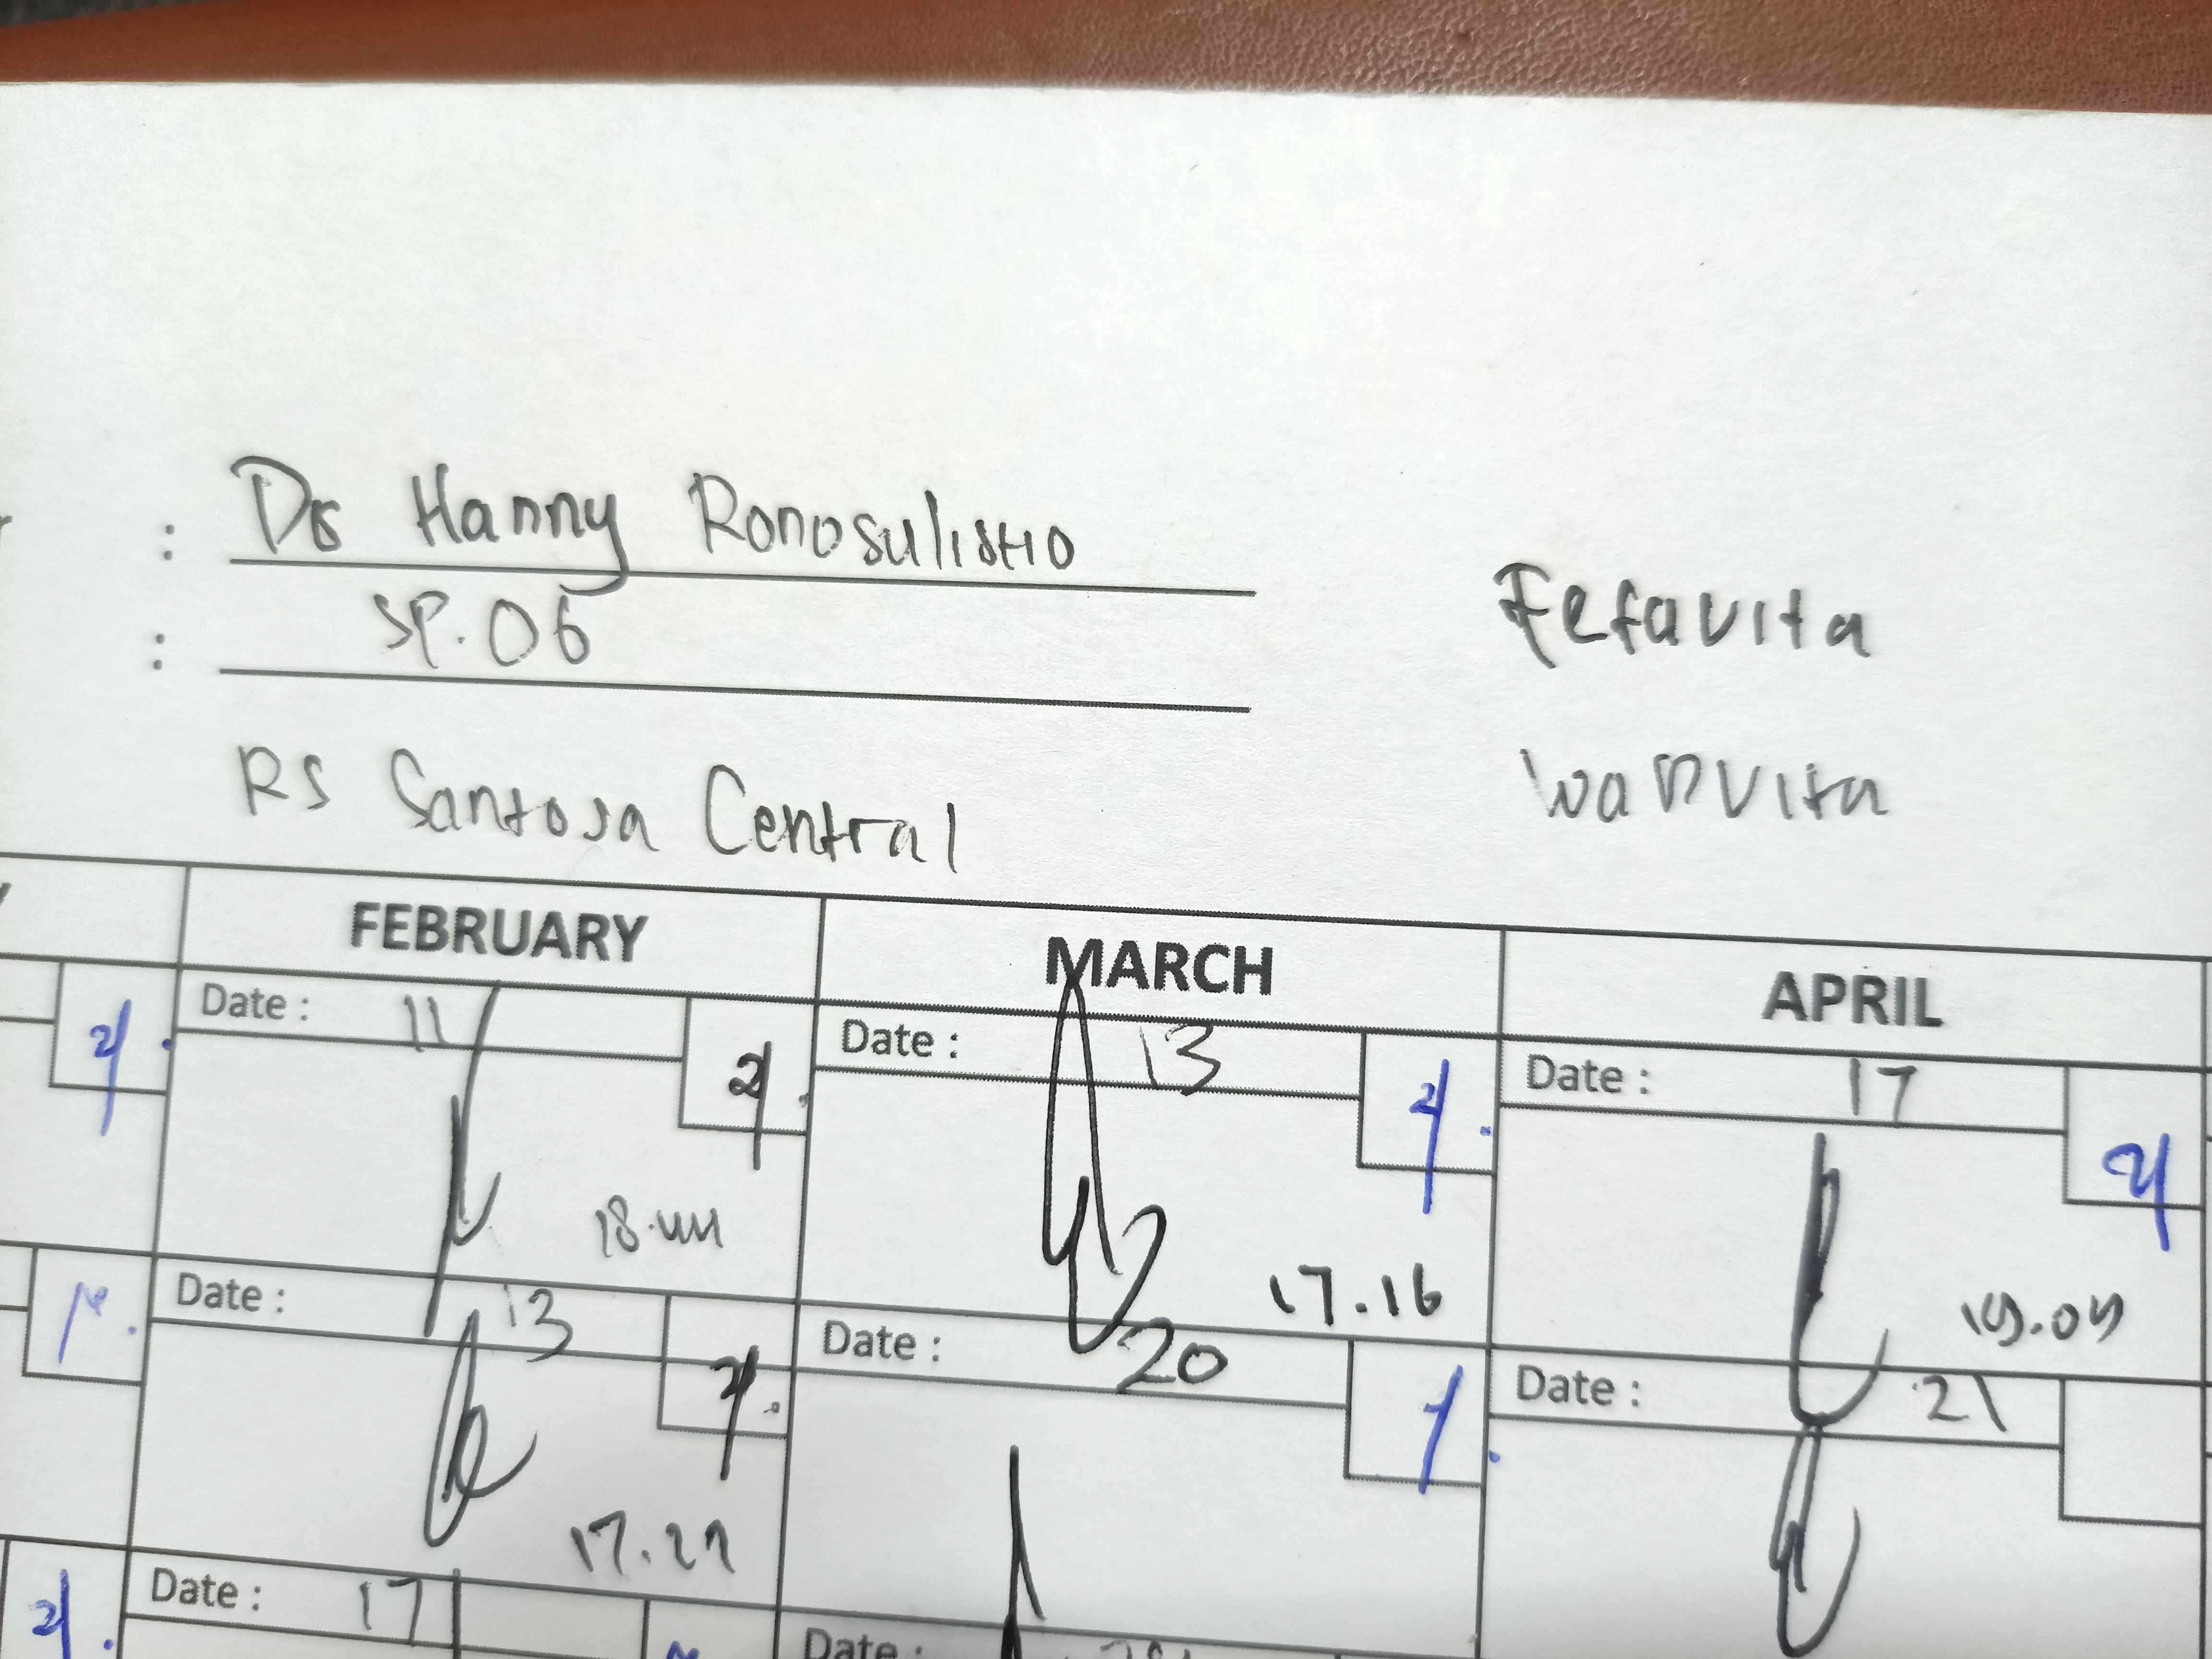 : Dr Hanny Ronosulistio
: SP.OG
Fefavita
RS Santosa Central
Wanvita
FEBRUARY MARCH APRIL
Date : 11 Date : 13 Date : 17
18.44 17.16 19.09
Date : 13 Date : 20 Date : 21
17.27
Date : 17 Date :